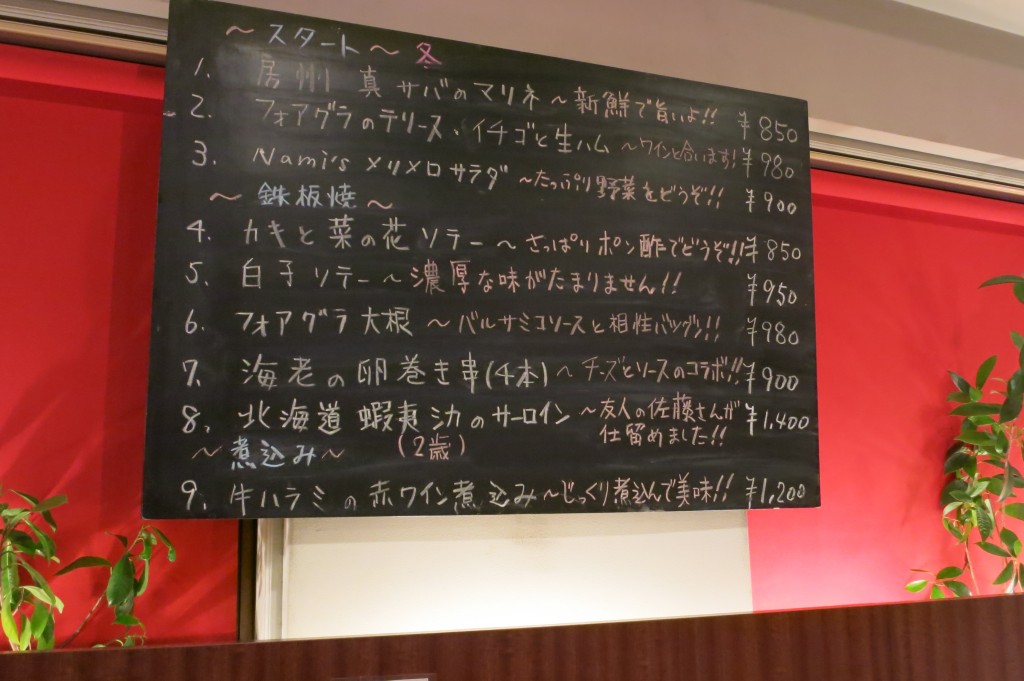 ～スタート～ 冬
1. 房州 真サバのマリネ～新鮮で旨いよ!! ¥850
2. フォアグラのテリース、イチゴと生ハム～ワインと合います! ¥980
3. Nami's メリメロサラダ ～たっぷり野菜をどうぞ!! ¥900
～鉄板焼～
4. カキと菜の花ソテー～さっぱりポン酢でどうぞ!! ¥850
5. 白子ソテー～濃厚な味がたまりません!! ¥950
6. フォアグラ大根～バルサミコソースと相性バツグン!! ¥980
7. 海老の卵巻き串(4本)～チーズとソースのコラボ!! ¥900
8. 北海道 蝦夷シカのサーロイン～友人の佐藤さんが ¥1,400
(2歳) 仕留めました!!
～煮込み～
9. 牛ハラミの赤ワイン煮込み～じっくり煮込んで美味!! ¥1,200